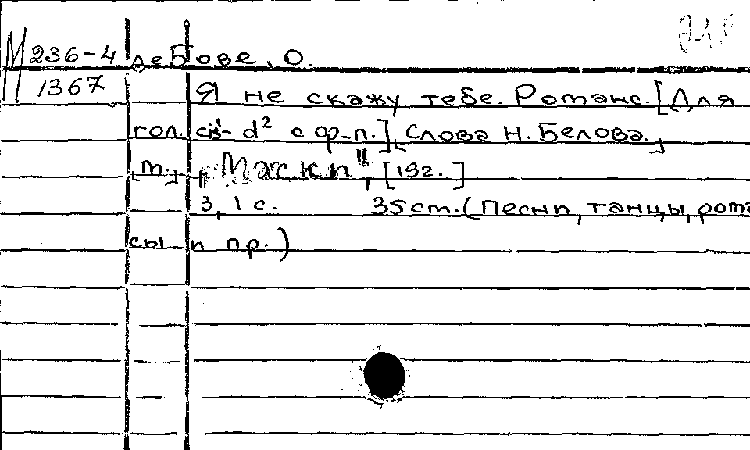 М 236-4 деБове, О.
1367 Я не скажу тебе. Романс. [Для
гол. d² с ф-п.], Слова Н. Белова.,
[М.], „Маски", [19г.]
3, 1 с. 35 см. (Песни, танцы, рома
сы и пр.)